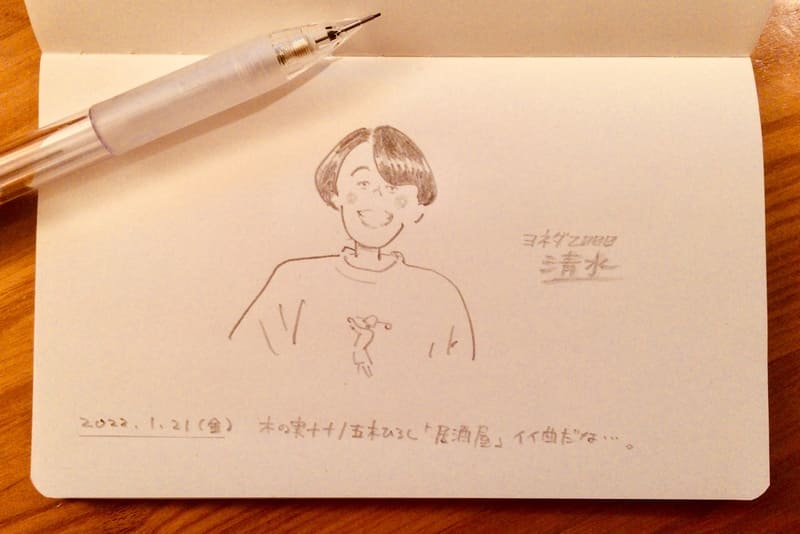 ヨネダ2000
清水
2022.1.21(金) 木の実ナナ/五木ひろし「居酒屋」イイ曲だな…。